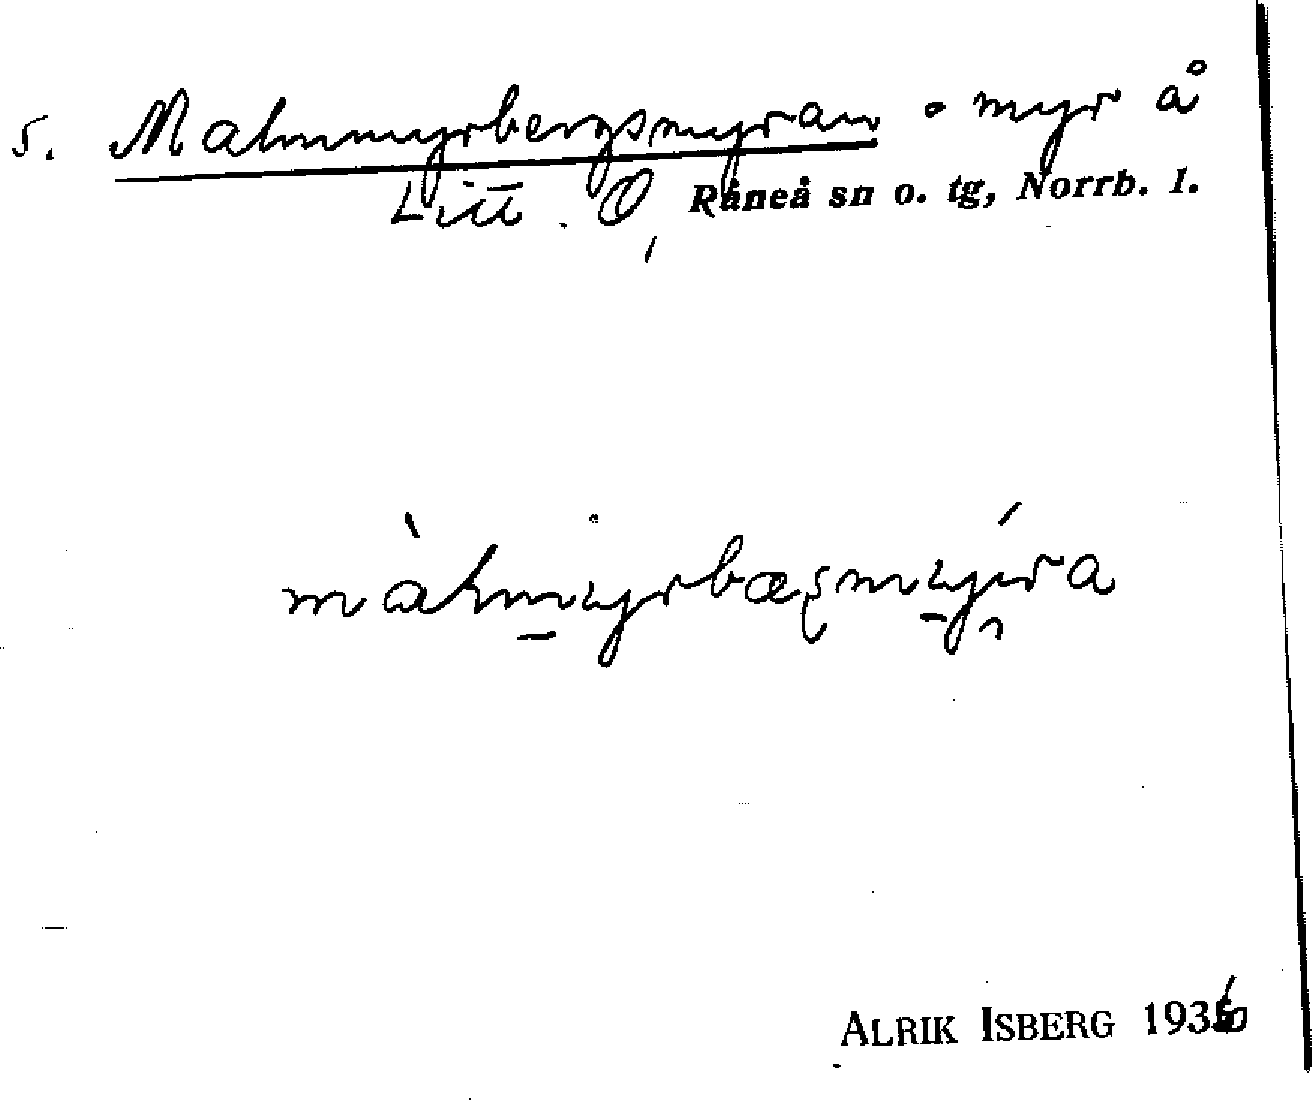 5. Malmmyrbergsmyran • myr å
Litt. O, Råneå sn o. tg, Norrb. l.
ALRIK ISBERG 1936